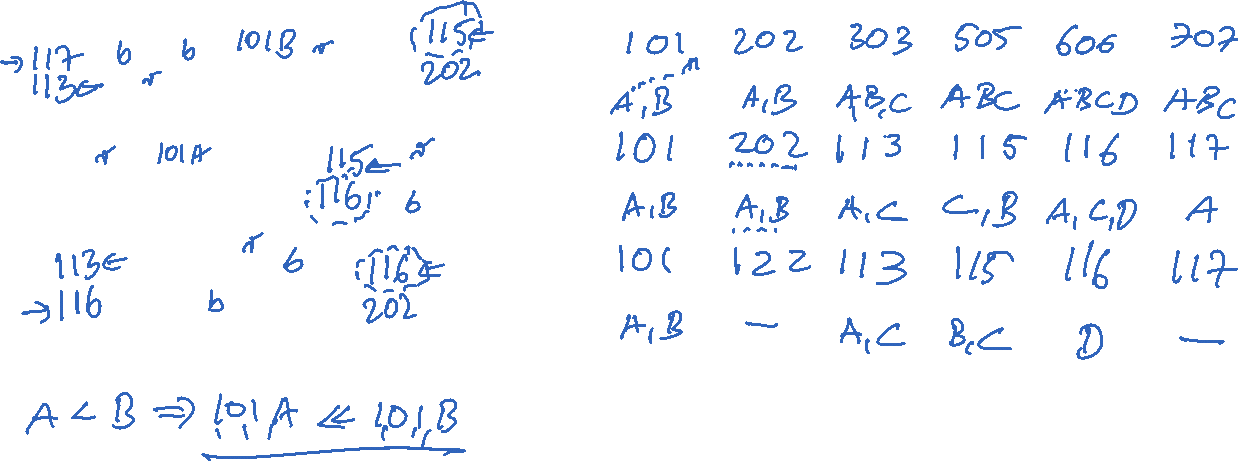 →117 6 6 101B r 115←
113← r 202
r 101A 115← r
116 6
113← r 6 116←
→116 b 202
A < B ⇒ 101A ≪ 101B
101 202 303 505 606 707
A,B A,B A,B,C ABC ABCD ABC
101 202 113 115 116 117
A,B A,B A,C C,B A,C,D A
101 122 113 115 116 117
A,B — A,C B,C D —